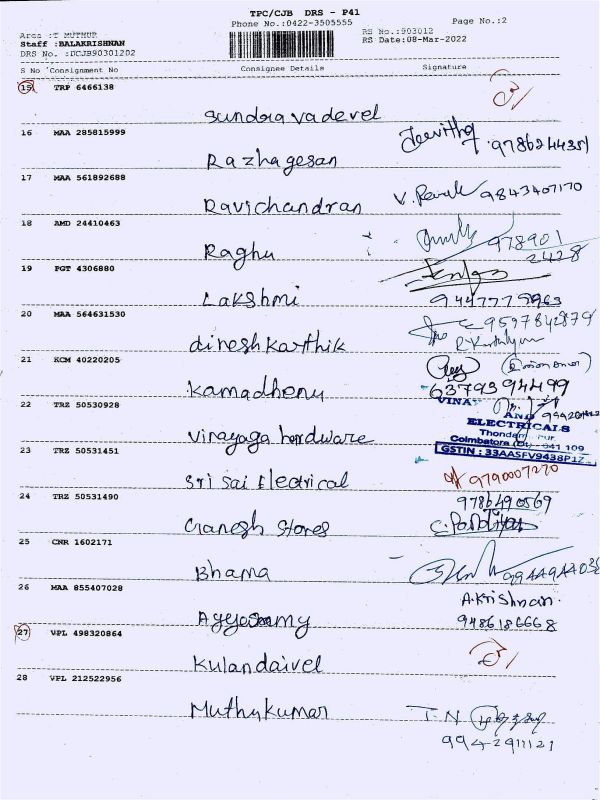 TPC/CJB DRS - P41
Phone No.:0422-3505555
Page No.:2
Area :T MUTHUR
RS No.:903012
Staff :BALAKRISHNAN
RS Date:08-Mar-2022
DRS No. :DCJB90301202
S No Consignment No Consignee Details Signature
15 TRP 6466138
Sundravadevel
16 MAA 285815999
Jeevitha
9786244351
Razhagesan
17 MAA 561892688
9843407170
Ravichandran
18 AMD 24410463
978901
2428
Raghu
19 PGT 4306880
Lakshmi
20 MAA 564631530
9597842879
dinesh karthik
21 KCM 40220205
6379394499
Kamadhenu
22 TRZ 50530928
AND
ELECTRICALS
Vinayaga hardware
23 TRZ 50531451
641 109
GSTIN : 33AASFV9438P1Z
9790007270
Sri Sai Electrical
24 TRZ 50531490
9786490569
Ganesh Stores
25 CNR 1602171
Bhama
26 MAA 855407028
A.Krishnan.
9486186668
Ayyasamy
27 VPL 498320864
Kulandaivel
28 VPL 212522956
Muthukumar
T.N
994-2911121